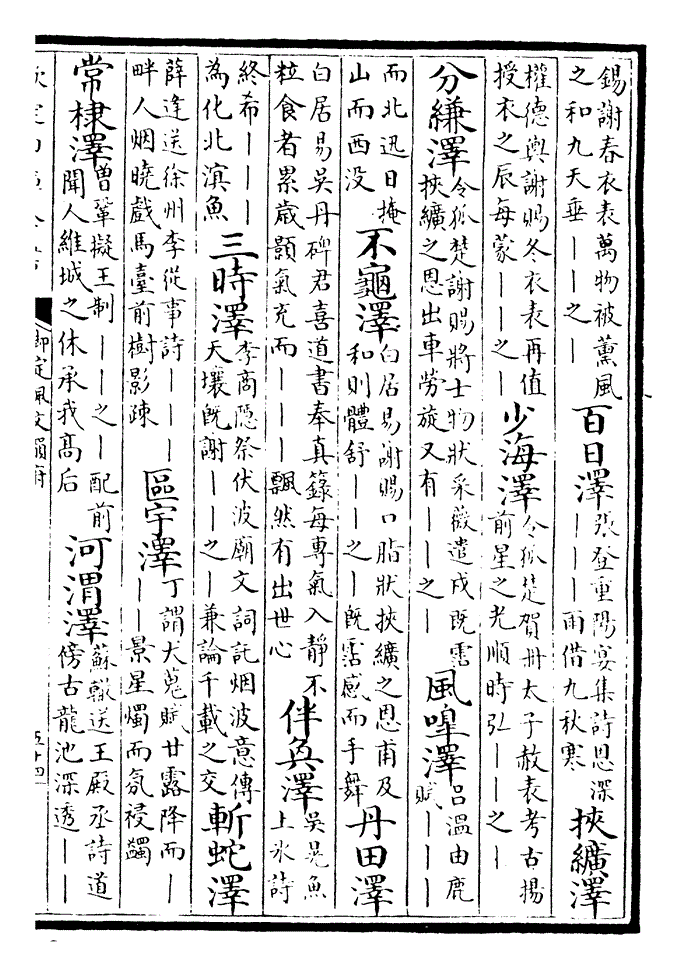 錫謝春衣表萬物被薰風
之和九天垂——之—
百日澤
張登重陽宴集詩恩深
———雨借九秋寒
挾纊澤
權德輿謝賜冬衣表再值
授衣之辰每蒙——之—
少海澤
令狐楚賀冊太子赦表考古揚
前星之光順時弘——之—
分縑澤
令狐楚謝賜將士物狀采薇遣戍既霑
挾纊之恩出車勞旅又有——之—
風嘷澤
呂溫由鹿
賦———
而北迅日掩
山而西没
不龜澤
白居易謝賜口脂狀挾纊之恩甫及
和則體舒——之—既霑感而手舞
丹田澤
白居易吳丹碑君喜道書奉真籙每專氣入靜不
粒食者累歲顥氣充而———飄然有出世心
伴奐澤
吳晃魚
上氷詩
終希———
為化北溟魚
三時澤
李商隱祭伏波廟文詞託烟波意傳
天壤旣謝——之—兼論千載之交
斬蛇澤
薛逢送徐州李從事詩———
畔人烟曉戲馬臺前樹影疎
區宇澤
丁謂大蒐賦甘露降而—
——景星燭而氛祲蠲
常棣澤
曾鞏擬王制——之—配前
聞人維城之休承我髙后
河渭澤
蘇轍送王殿丞詩道
傍古龍池深透——
御定佩文韻府
五十四